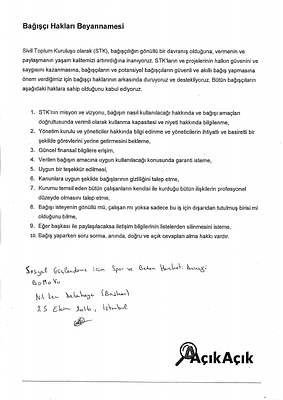 Bağışçı Hakları Beyannamesi
Sivil Toplum Kuruluşu olarak (STK), bağışçılığın gönüllü bir davranış olduğuna, vermenin ve
paylaşmanın yaşam kalitemizi artırdığına inanıyoruz. STK'ların ve projelerinin halkın güvenini ve
saygısını kazanmasına, bağışçıların ve potansiyel bağışçıların güvenli ve akıllı bağış yapmasına
önem verdiğimiz için bağışçı haklarının arkasında duruyoruz ve destekliyoruz. Bütün bağışçıların
aşağıdaki haklara sahip olduğunu kabul ediyoruz.
1. STK'nın misyon ve vizyonu, bağışın nasıl kullanılacağı hakkında ve bağışı amaçları
doğrultusunda verimli olarak kullanma kapasitesi ve niyeti hakkında bilgilenme,
2. Yönetim kurulu ve yöneticiler hakkında bilgi edinme ve yöneticilerin ihtiyatlı ve basiretli bir
şekilde görevlerini yerine getirmesini bekleme,
3. Güncel finansal bilgilere erişim,
4. Verilen bağışın amacına uygun kullanılacağı konusunda garanti isteme,
5. Uygun bir teşekkür edilmesi,
6. Kanunlara uygun şekilde bağışlarının gizliliğini talep etme,
7. Kurumu temsil eden bütün çalışanların kendisi ile kurduğu bütün ilişkilerin profesyonel
düzeyde olmasını talep etme,
8. Bağış isteyenin gönüllü mü, çalışan mı yoksa sadece bu iş için dışardan tutulmuş birisi mi
olduğunu bilme,
9. Eğer başkası ile paylaşılacaksa iletişim bilgilerinin listelerden silinmesini isteme,
10. Bağış yaparken soru sorma, anında, doğru ve açık cevapları alma hakkı vardır.
Sosyal Güçlendirme için Spor ve Beden Hareketi Derneği
BoMoVu
Nil (Başkan)
25 Ekim 2016, İstanbul
AçıkAçık